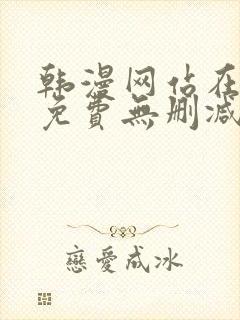 韩漫网站在
免費無删减
戀愛成冰